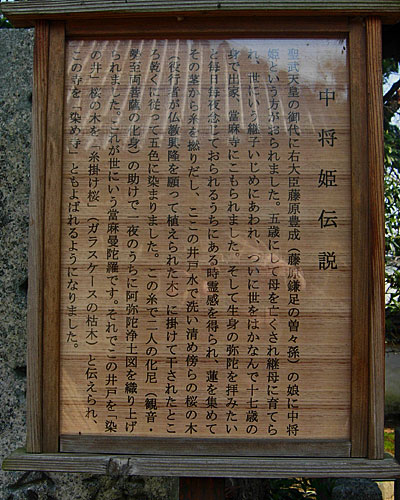 中将姫伝説
聖武天皇の御代に右大臣藤原豊成（藤原鎌足の曽々孫）の娘に中将
姫という方がおられました。五歳にして母を亡くされ継母に育てら
れ、世にいう継子いじめにあわれ、ついに世をはかなんで十七歳の
身で出家、當麻寺にこもられました。そして生身の弥陀を拝みたい
と毎日毎夜念じておられるうちにある時霊感を得られ、蓮を集めて
その茎から糸を撚りだし、ここの井戸水で洗い清め傍らの桜の木
（役行者が仏教興隆を願って植えられた木）に掛けて干されたとこ
ろ乾くに従って五色に染まりました。この糸で二人の化尼（観音・
勢至両菩薩の化身）の助けで一夜のうちに阿弥陀浄土図を織り上げ
られました。これが世にいう當麻曼陀羅です。それでこの井戸を「染
の井」桜の木を「糸掛け桜」（ガラスケースの枯木）と伝えられ、
この寺を「染め寺」ともよばれるようになりました。